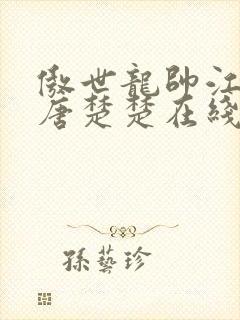 傲世龍帥江
唐楚楚在綫
孫藝珍